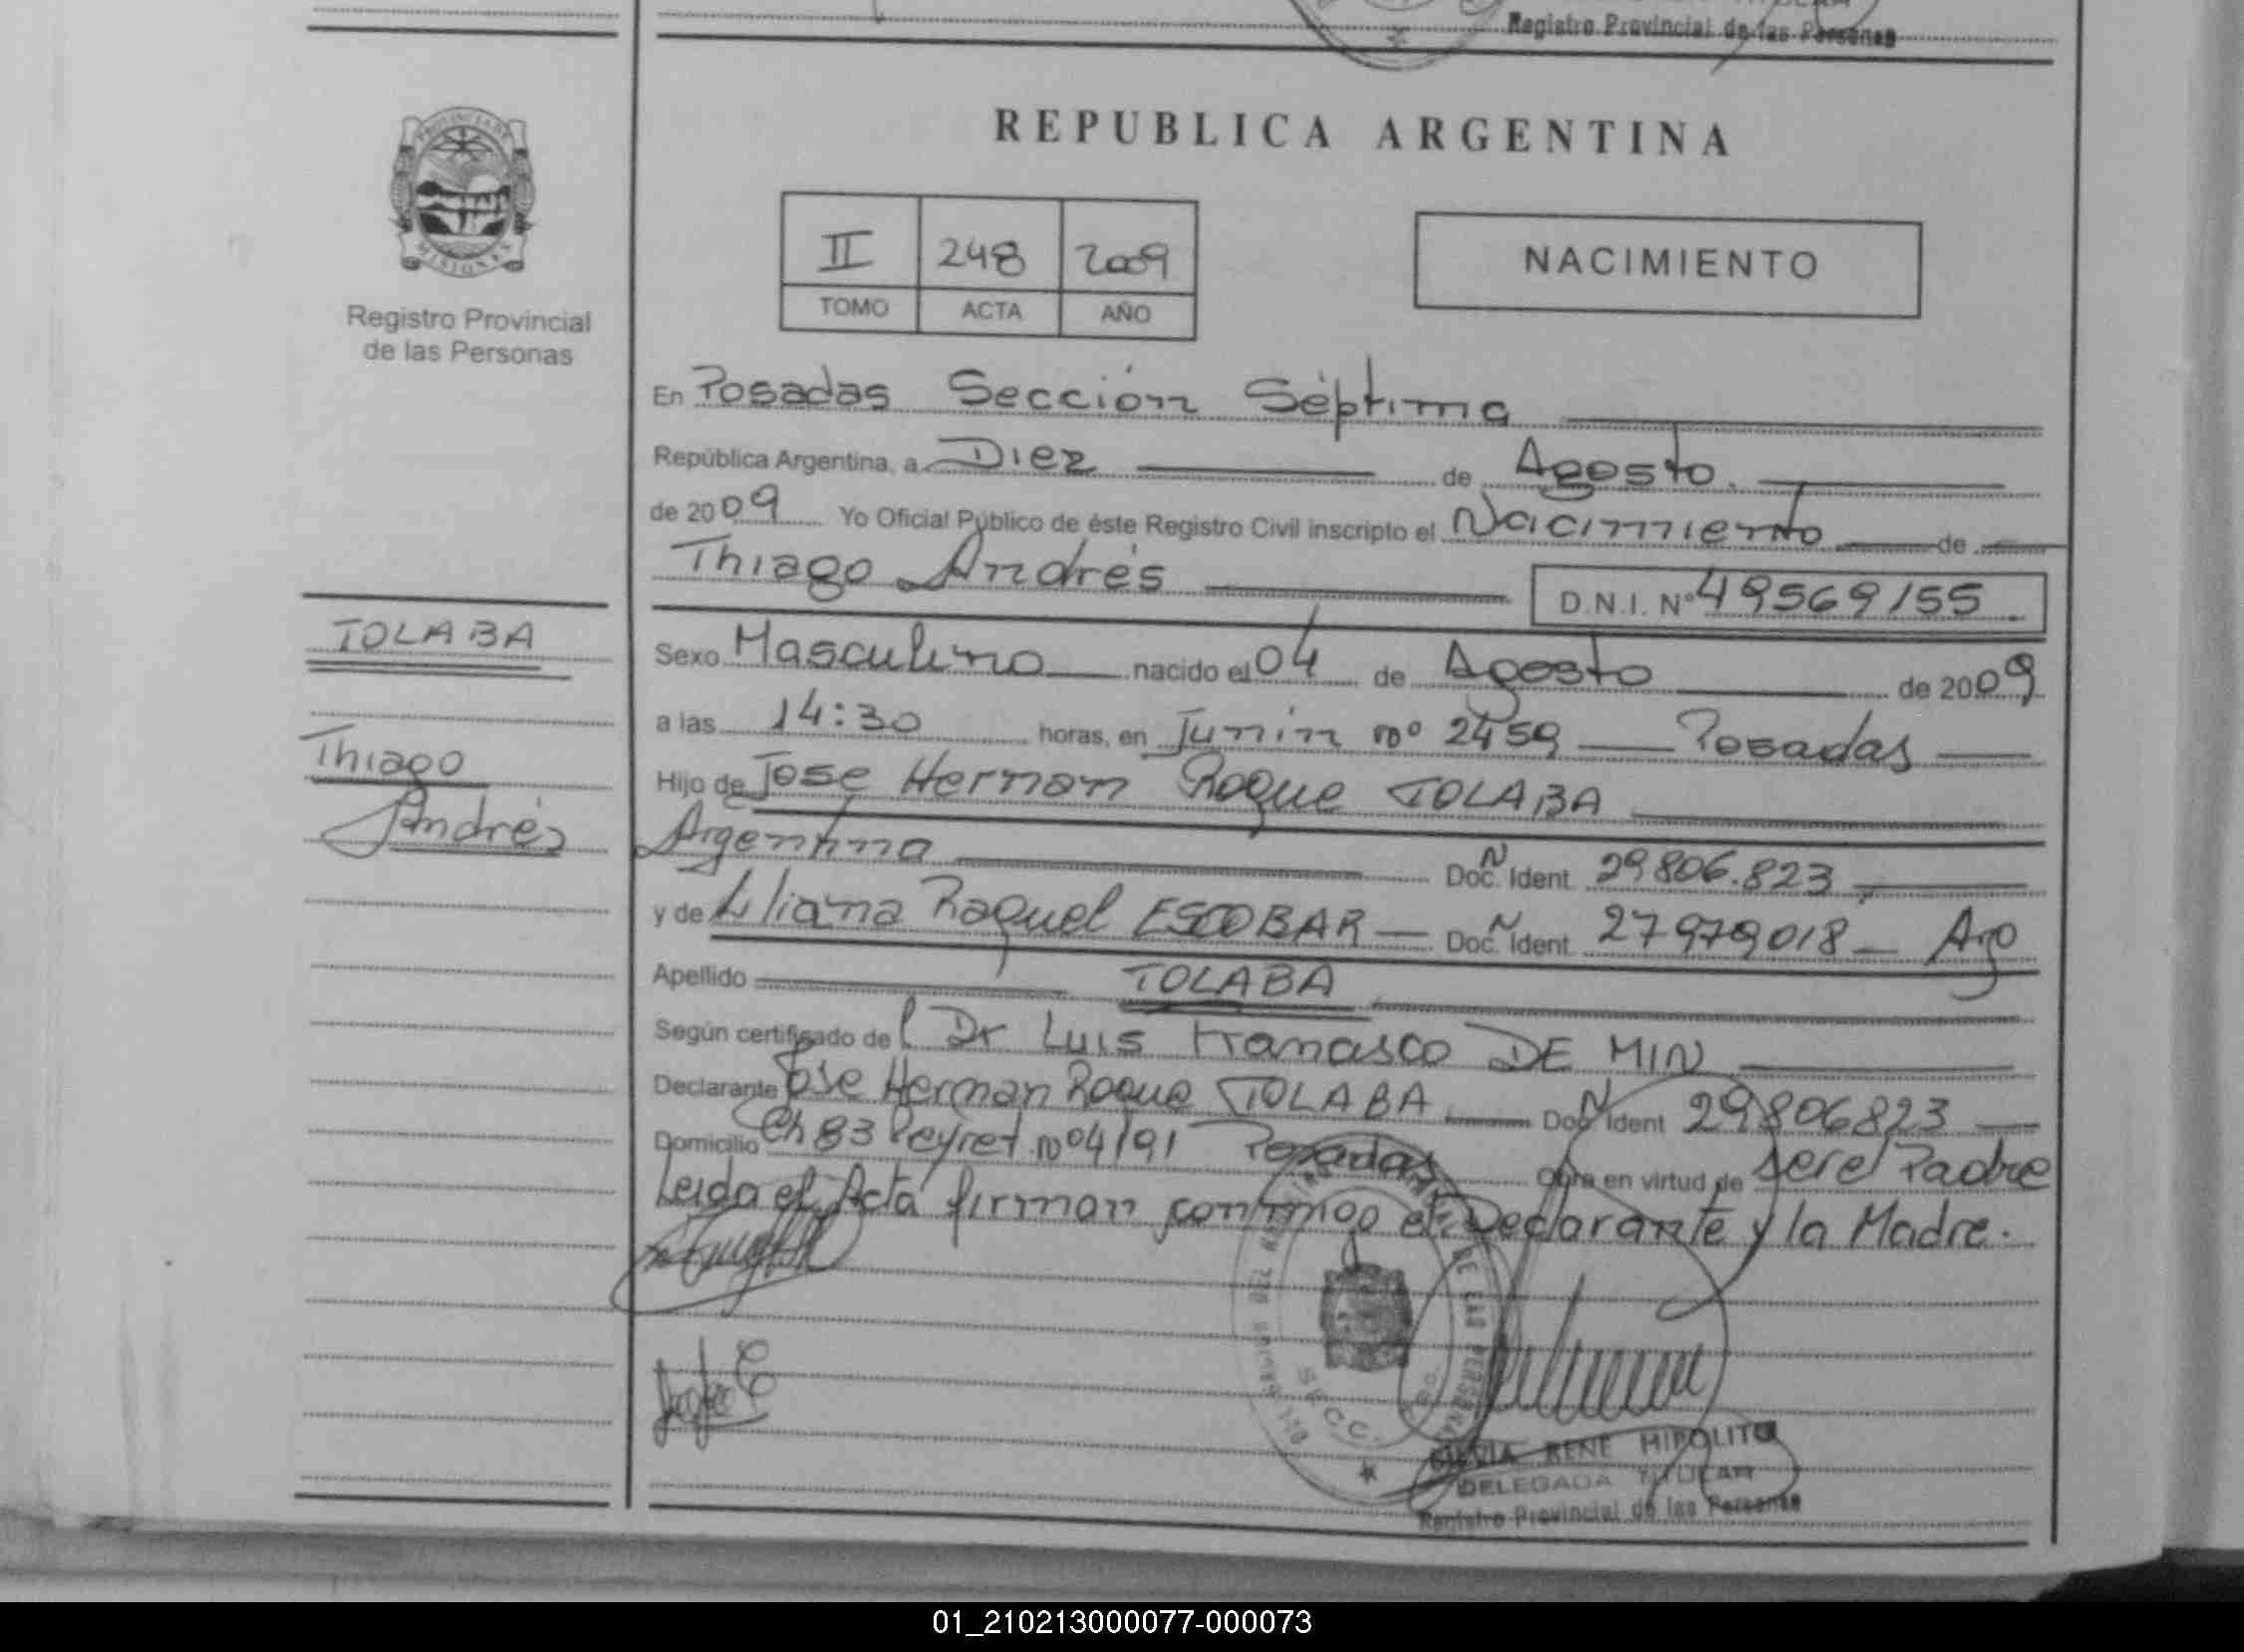 Registro Provincial de las Personas
REPUBLICA ARGENTINA
PROVINCIA DE
MISIONES
Registro Provincial
de las Personas
II 248 2009
TOMO ACTA AÑO
NACIMIENTO
En Posadas Sección Séptima
República Argentina, a Diez de Agosto.
de 2009 Yo Oficial Público de éste Registro Civil inscripto el Nacimiento de
Thiago Andrés D.N.I. Nº 49569155
TOLABA
Thiago
Andrés
Sexo Masculino nacido el 04 de Agosto de 2009
a las 14:30 horas, en Junin nº 2459 Posadas
Hijo de Jose Hernan Roque TOLABA
Argentina Doc. Ident. 29806.823
y de Liliana Raquel ESCOBAR Doc. Ident. 27979018 Arg
Apellido TOLABA
Según certificado del Dr Luis Francisco DE MIN
Declarante Jose Hernan Roque TOLABA Doc. Ident 29806823
Domicilio Ch 83 Peyret nº 4191 Posadas Obra en virtud de ser el Padre
Leida el Acta firman conmigo el Declarante y la Madre.
RENE HIPOLITO
DELEGADA TITULAR
Registro Provincial de las Personas
01_210213000077-000073